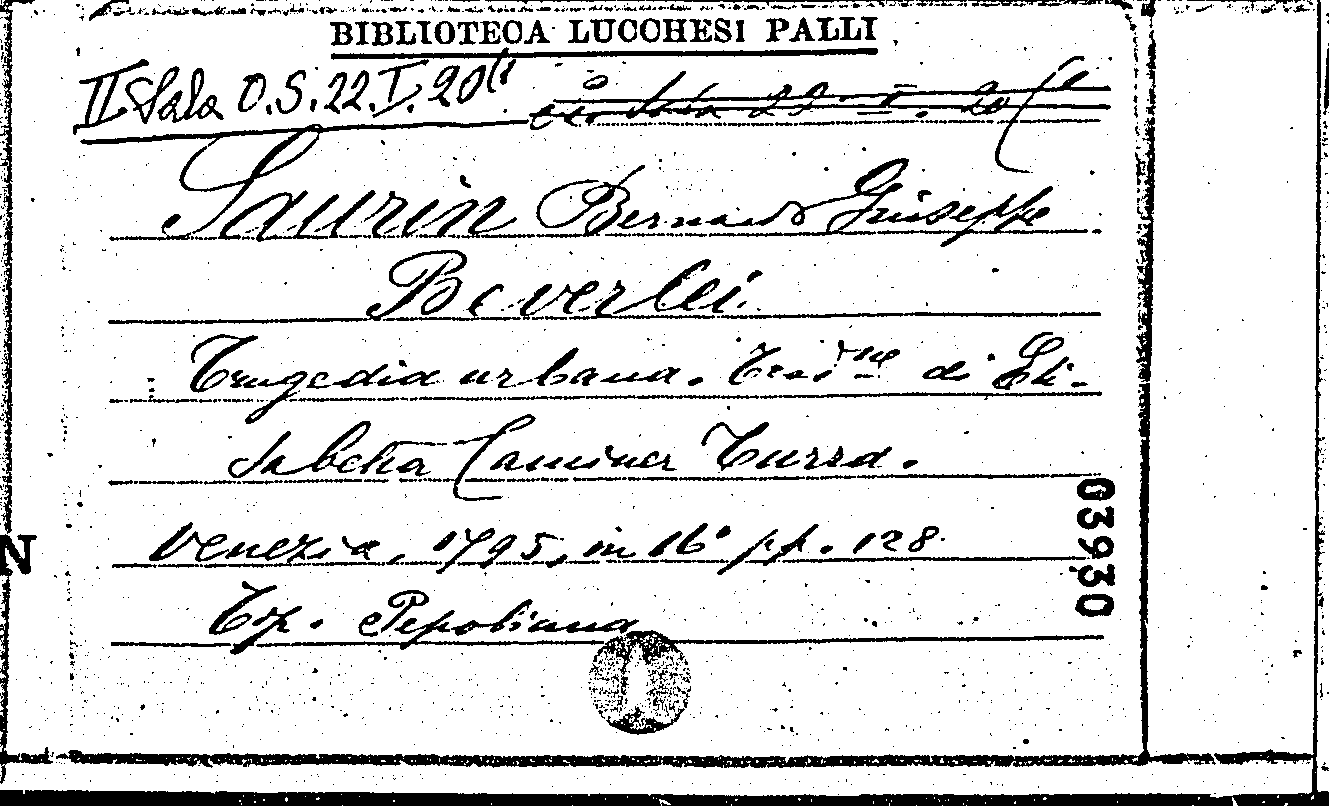 BIBLIOTECA LUCCHESI PALLI
II Sala O.S.22.I.20
Saurin Bernardo Giuseppe
Beverlei.
Tragedia urbana. Trad.ne di Eli-
sabetta Caminer Turra.
Venezia, 1795, in 16° pp. 128.
Tip. Pepoliana
03930
N